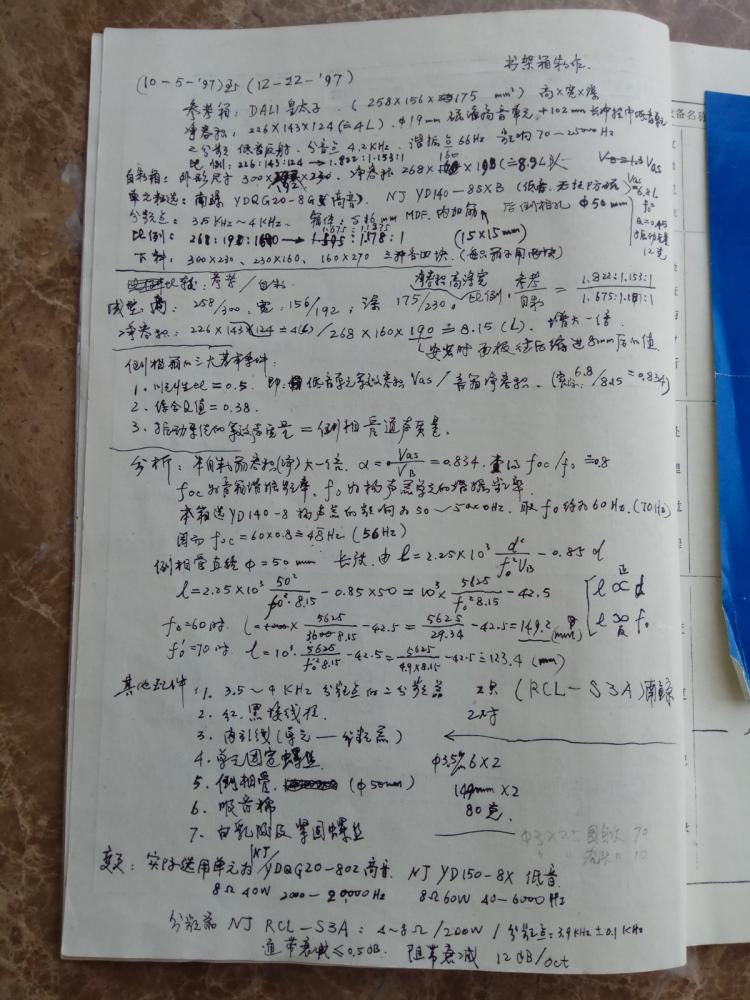 书架箱制作.
(10-5-'97)至(12-22-'97)
参考箱: DALI 皇太子. (258×156×175 mm³) 高×宽×深
净容积: 226×143×124 (≐4L). Φ19mm 高音单元 + 102mm 低音单元
二分频 低音反射. 分音点 4.2KHz. 谐振点 66Hz 频响 70~25000Hz
比例: 226:143:124 → 1.822:1.153:1
自制箱: 外形尺寸 300× ×230. 净容积 268× ×198 (≐8.9L)
单元拟选: 南鲸 YDQG20-8G (高音). NJ YD140-85XB (低音.
后倒相孔 Φ50mm
分频点: 3.5KHz~4KHz. 箱体: 16mm MDF. 内加筋 (15×15mm)
比例: 268:198: → 1.595:1.178:1
下料: 300×230, 230×160, 160×270 三种各四块.
比较: 参考/自制
成型 高: 258/300, 宽: 156/192, 深 175/230. 比例. 参考/自制 = 1.822:1.153:1 / 1.675:1.187:1
净容积高深宽
净容积: 226×143×124 ≐4(L) / 268×160×190 ≐ 8.15 (L). 增大一倍.
安装时面板往后缩进8mm后的值.
倒相箱的三大基本条件:
1. 顺性比 = 0.5. 即: 低音单元等效容积 Vas / 音箱净容积. (实际: 6.8/8.15 = 0.834)
2. 综合Q值 = 0.38.
3. 振动系统的等效声质量 = 倒相管道声质量.
分析: 本自制箱容积(净)大一倍. α = Vas/VB = 0.834. 查得 foc/f₀ ≐0.8
foc为音箱谐振频率, f₀为扬声器单元的谐振频率.
本箱选YD140-8扬声器的频响为50~5000Hz. 取f₀约为60Hz. (70Hz)
因而foc=60×0.8≐48Hz (56Hz)
倒相管直径 Φ=50mm 长度. 由 l = 2.25×10³ d²/f₀²VB - 0.85 d
l = 2.25×10³ 50²/f₀²·8.15 - 0.85×50 = 10³× 5625/f₀²·8.15 - 42.5
l ∝正 d
l ∝反 f₀
f₀=60时. l= × 5625/3600·8.15 - 42.5 = 5625/29.34 - 42.5 = 149.2 (mm)
f₀'=70时 l = 10³· 5625/f₀²·8.15 - 42.5 = 5625/4.9×8.15 - 42.5 ≐ 123.4 (mm)
其他配件: 1. 3.5~4 KHz 分频点的二分频器 2只 (RCL-S3A)南鲸
2. 红.黑接线柱. 2对
3. 内引线 (单元—分频器)
4. 单元固定螺丝. Φ3.5 6×2
5. 倒相管. (Φ50mm) 149mm ×2
6. 吸音棉 80克.
7. 白乳胶及紧固螺丝
变更: 实际选用单元为NJ YDQG20-802高音. NJ YD150-8X 低音.
8Ω 40W 2000-20000Hz 8Ω60W 40-6000Hz
分频器 NJ RCL-S3A: 4~8Ω/200W / 分频点: 3.9KHz±0.1KHz
通带衰减≤0.5dB. 阻带衰减 12dB/oct